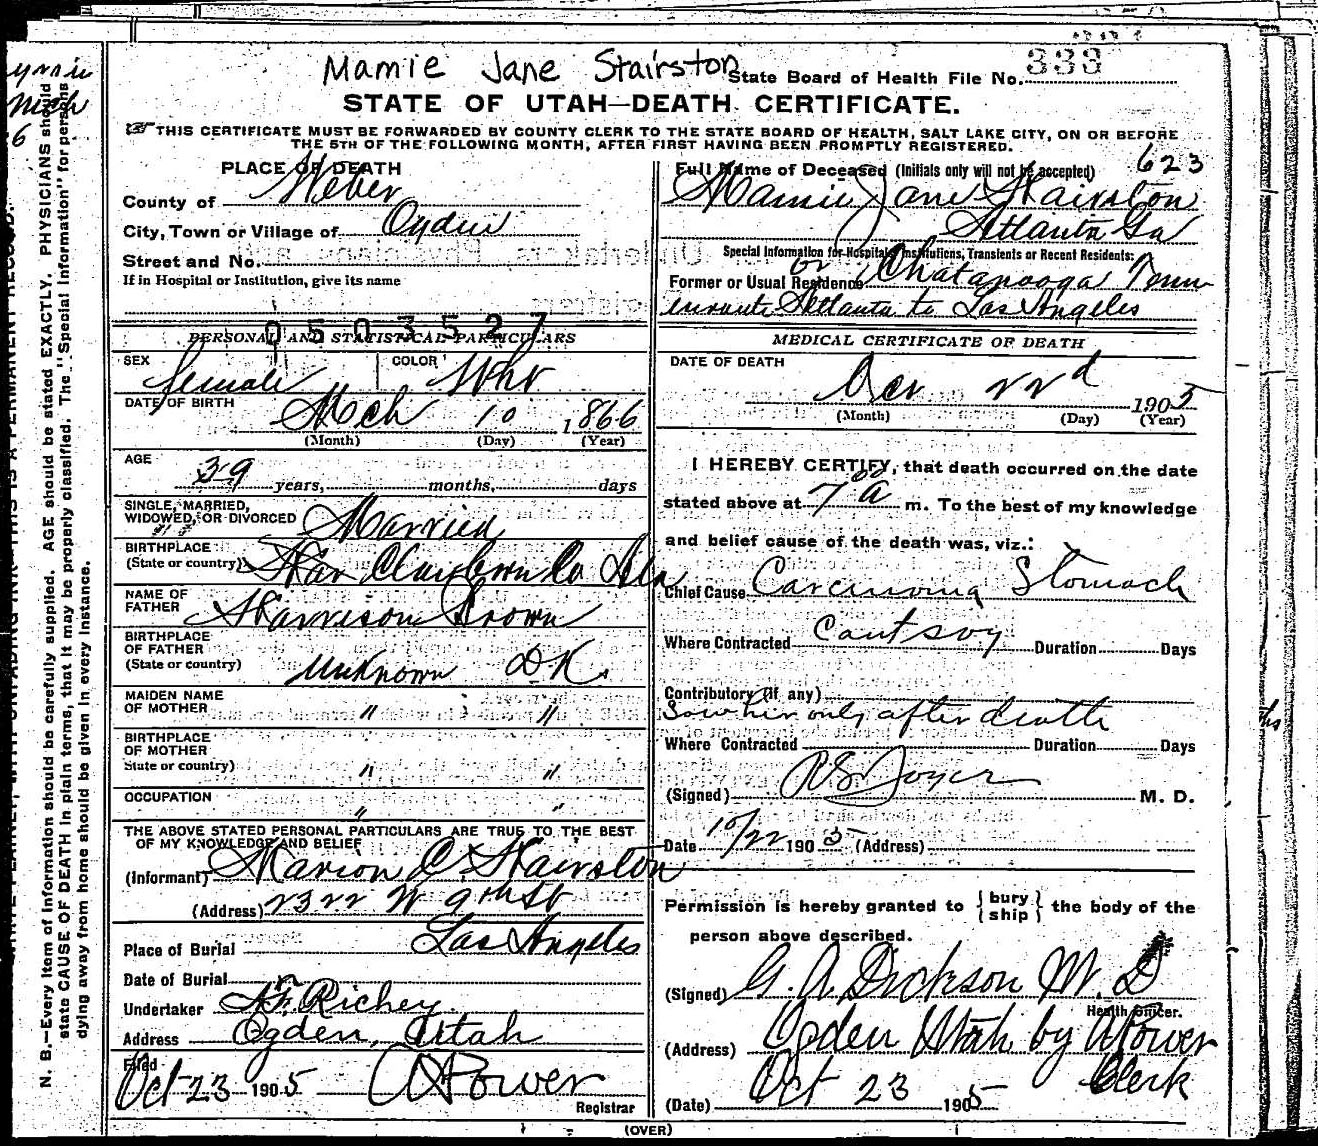 Mamie Jane Stairston
State Board of Health File No. 333
STATE OF UTAH—DEATH CERTIFICATE.
THIS CERTIFICATE MUST BE FORWARDED BY COUNTY CLERK TO THE STATE BOARD OF HEALTH, SALT LAKE CITY, ON OR BEFORE
THE 5TH OF THE FOLLOWING MONTH, AFTER FIRST HAVING BEEN PROMPTLY REGISTERED.
PLACE OF DEATH
County of Weber
City, Town or Village of Ogden
Street and No.
If in Hospital or Institution, give its name
0503527
PERSONAL AND STATISTICAL PARTICULARS
SEX female COLOR Wht
DATE OF BIRTH Mch 10 1866
(Month) (Day) (Year)
AGE
39 years, months, days
SINGLE, MARRIED,
WIDOWED, OR DIVORCED Married
BIRTHPLACE
(State or country) Co Ala
NAME OF
FATHER Harrison Brown
BIRTHPLACE
OF FATHER
(State or country) Unknown D.K.
MAIDEN NAME
OF MOTHER " "
BIRTHPLACE
OF MOTHER
State or country) " "
OCCUPATION " "
THE ABOVE STATED PERSONAL PARTICULARS ARE TRUE TO THE BEST
OF MY KNOWLEDGE AND BELIEF
(Informant) Marion C. Hairston
(Address) 2322 W 9th St
Place of Burial Los Angeles
Date of Burial
Undertaker Richey
Address Ogden, Utah
Filed
Oct 23 1905 A Power
Registrar
(OVER)
623
Full Name of Deceased (Initials only will not be accepted)
Mamie Jane Hairston
Atlanta Ga
Special Information for Hospitals, Institutions, Transients or Recent Residents:
Former or Usual Residence or Chatanooga Tenn
enroute Atlanta to Los Angeles
MEDICAL CERTIFICATE OF DEATH
DATE OF DEATH
Oct 22d 1905
(Month) (Day) (Year)
I HEREBY CERTIFY, that death occurred on the date
stated above at 7 00 a m. To the best of my knowledge
and belief cause of the death was, viz.:
Chief Cause Carcinoma Stomach
Where Contracted Cant say Duration Days
Contributory (if any)
Saw her only after death
Where Contracted Duration Days
(Signed) M. D.
Date 10/22 1905 (Address)
Permission is hereby granted to { bury / ship } the body of the
person above described.
(Signed) G. A. Dickson M. D
Health Officer.
(Address) Ogden Utah by A Power
Clerk
(Date) Oct 23 1905
N. B.—Every item of information should be carefully supplied. AGE should be stated EXACTLY. PHYSICIANS should
state CAUSE OF DEATH in plain terms, that it may be properly classified. The "Special Information" for persons
dying away from home should be given in every instance.